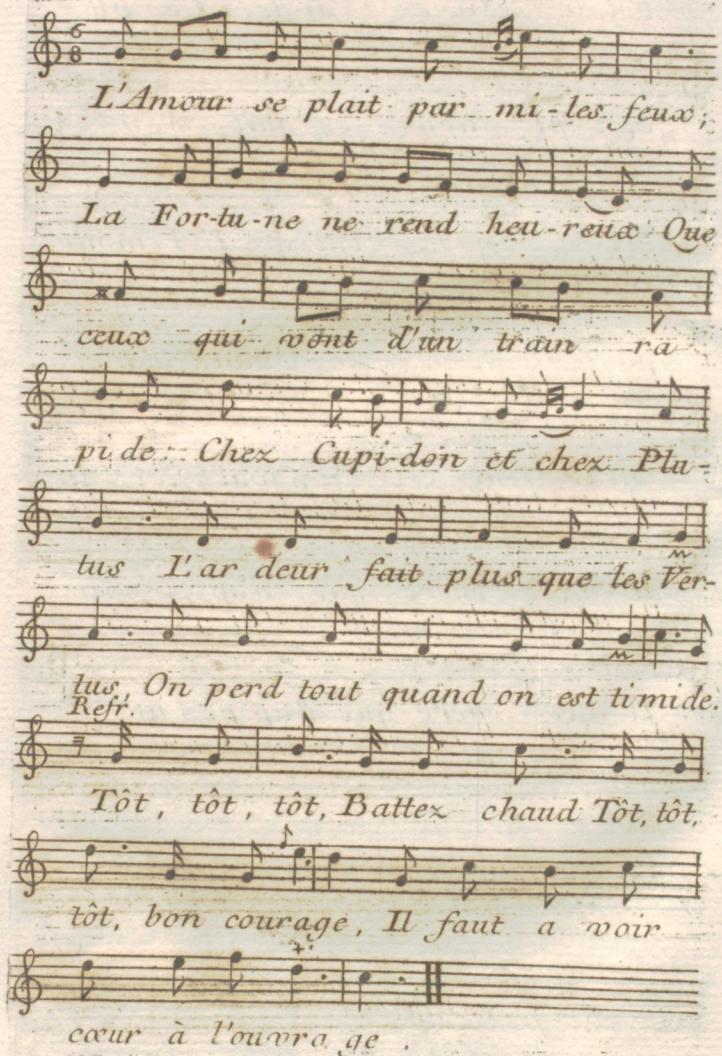 6
8
L'Amour se plait par mi-les feux,
La For-tu-ne ne rend heu-reux Que
ceux qui vont d'un train ra
pide Chez Cupi-don et chez Plu-
tus L'ardeur fait plus que les Ver-
tus, On perd tout quand on est timide.
Refr.
Tôt, tôt, tôt, Battez chaud Tôt, tôt,
tôt, bon courage, Il faut a voir
cœur à l'ouvra ge.